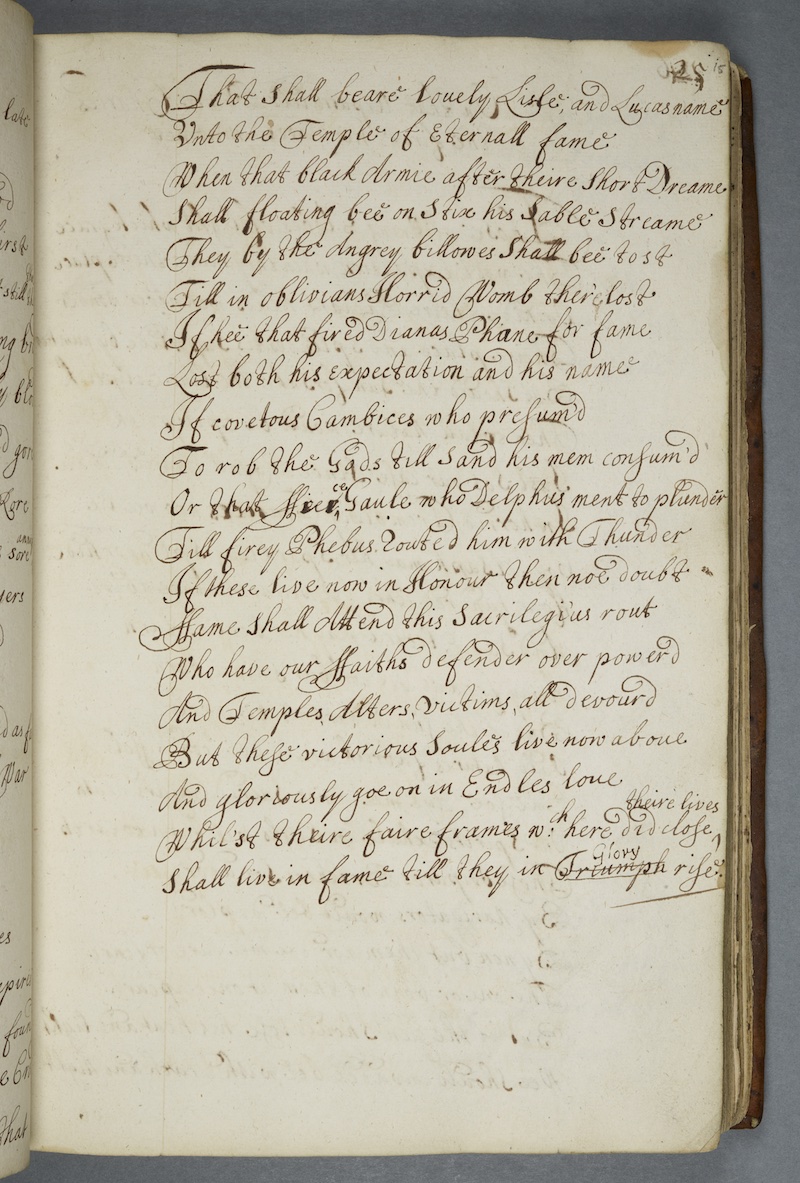 25 15
That shall beare lovely Lisle, and Lucas name
Unto the Temple of Eternall fame
When that black Armie after theire Short Dreame
Shall floating bee on Stix his Sable Streame
They by the Angrey billowes Shall bee tost
Till in oblivians Horrid Womb there lost
If hee that fired Dianas Phane for fame
Lost both his Expectation and his name
If covetous Cambices who presum'd
To rob the Gods till Sand his mem consum'd
Or that ffierce Gaule who Delphus ment to plunder
Till firey Phebus Routed him with Thunder
If these live now in Honour then noe doubt
ffame shall Attend this Sacrilegius rout
Who have our ffaiths defender over powerd
And Temples, Alters, victims, all devourd
But these victorious Soules live now above
And gloriously goe on in Endles love
theire lives
Whil'st theire faire frames wch here did close
Glory
Shall live in fame till they in Triumph rise.